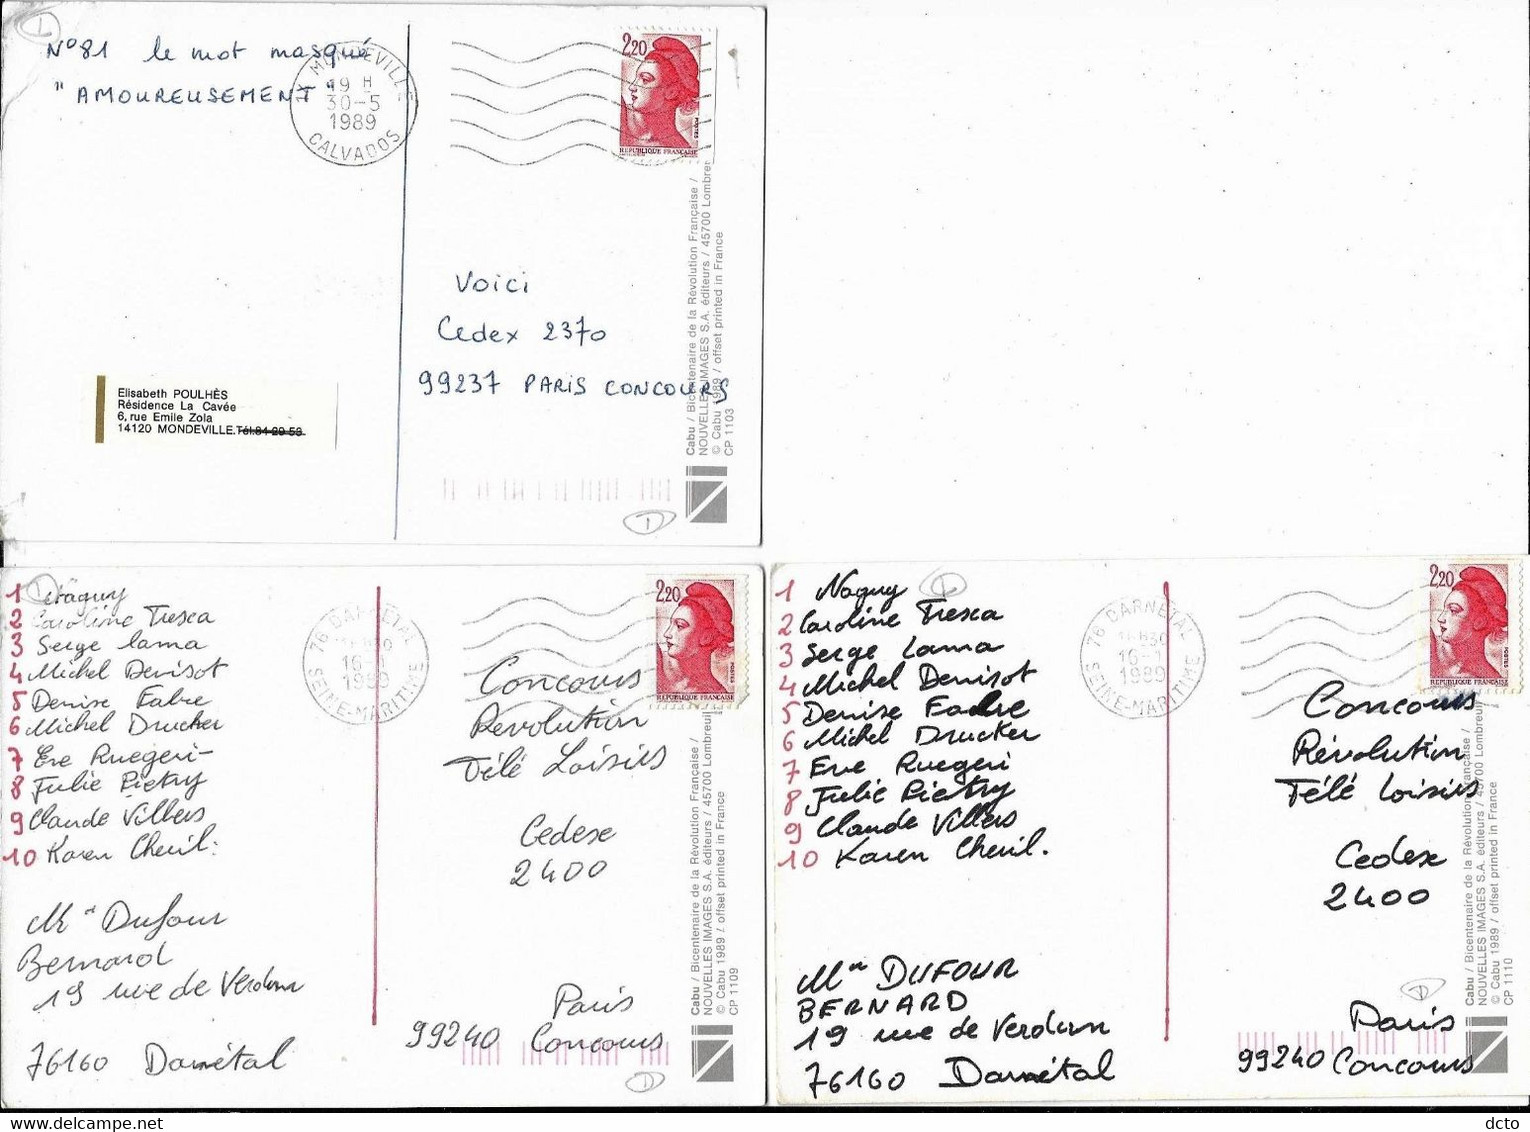 N° 81 le mot masqué
"AMOUREUSEMENT"
MONDEVILLE
19 H
30-5
1989
CALVADOS
2,20
POSTES
REPUBLIQUE FRANÇAISE
Voici
Cedex 2370
99237 PARIS CONCOURS
Elisabeth POULHÈS
Résidence La Cavée
6, rue Emile Zola
14120 MONDEVILLE.Tél.84-29-53
Cabu / Bicentenaire de la Révolution Française /
NOUVELLES IMAGES S.A. éditeurs / 45700 Lombreuil
© Cabu 1989 / offset printed in France
CP 1103
1 Naguy
2 Caroline Tresca
3 Serge Lama
4 Michel Denisot
5 Denise Fabre
6 Michel Drucker
7 Eve Ruegeri
8 Julie Pietry
9 Claude Villers
10 Karen Cheril.
Mr Dufour
Bernard
19 rue de Verdun
76160 Darnétal
76 DARNETAL
16-
1989
SEINE-MARITIME
2,20
POSTES
REPUBLIQUE FRANÇAISE
Concours
Revolution
Télé Loisirs
Cedex
2400
Paris
99240 Concours
Cabu / Bicentenaire de la Révolution Française /
NOUVELLES IMAGES S.A. éditeurs / 45700 Lombreuil
© Cabu 1989 / offset printed in France
CP 1109
1 Naguy
2 Caroline Tresca
3 Serge Lama
4 Michel Denisot
5 Denise Fabre
6 Michel Drucker
7 Eve Ruegeri
8 Julie Pietry
9 Claude Villers
10 Karen Cheril.
Mr DUFOUR
BERNARD
19 rue de Verdun
76160 Darnétal
76 DARNETAL
16-
1989
SEINE-MARITIME
2,20
POSTES
REPUBLIQUE FRANÇAISE
Concours
Révolution
Télé Loisirs
Cedex
2400
Paris
99240 Concours
Cabu / Bicentenaire de la Révolution Française /
NOUVELLES IMAGES S.A. éditeurs / 45700 Lombreuil
© Cabu 1989 / offset printed in France
CP 1110
dcto